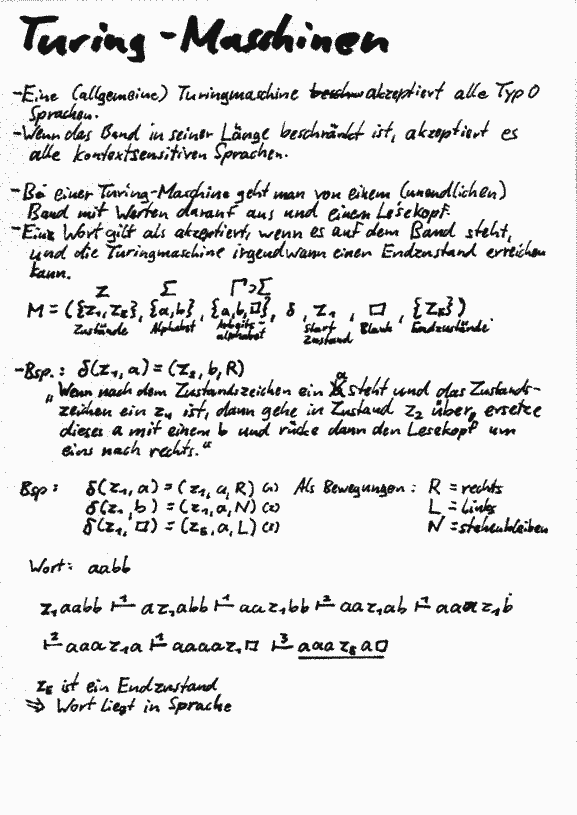 Turing-Maschinen
-Eine (allgemeine) Turingmaschine akzeptiert alle Typ 0
Sprachen.
-Wenn das Band in seiner Länge beschränkt ist, akzeptiert es
alle kontextsensitiven Sprachen.
-Bei einer Turing-Maschine geht man von einem (unendlichen)
Band mit Werten darauf aus und einem Lesekopf.
-Ein Wort gilt als akzeptiert, wenn es auf dem Band steht,
und die Turingmaschine irgendwann einen Endzustand erreichen
kann.
Z Σ Γ⊃Σ
M = ({z₁, z_E}, {a,b}, {a,b,□}, δ, z₁, □, {z_E})
Zustände Alphabet Arbeits- Start Blank Endzustände
alphabet Zustand
-Bsp.: δ(z₁,a)=(z₂,b,R)
„Wenn nach dem Zustandszeichen ein a steht und das Zustands-
zeichen ein z₁ ist, dann gehe in Zustand z₂ über, ersetze
dieses a mit einem b und rücke dann den Lesekopf um
eins nach rechts."
Bsp: δ(z₁,a)=(z₁,a,R) (1) Als Bewegungen: R = rechts
δ(z₁,b)=(z₁,a,N) (2) L = Links
δ(z₁,□)=(z_E,a,L) (3) N = stehenbleiben
Wort: aabb
z₁aabb ⊢¹ az₁abb ⊢¹ aaz₁bb ⊢² aaz₁ab ⊢¹ aaaz₁b
⊢² aaaz₁a ⊢¹ aaaaz₁□ ⊢³ aaaz_Ea□
z_E ist ein Endzustand
⇒ Wort liegt in Sprache